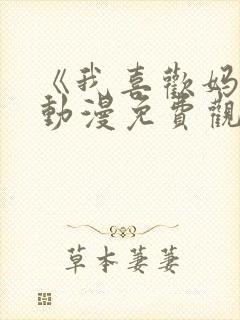 《我喜歡妈
動漫免費觀
草本萋萋